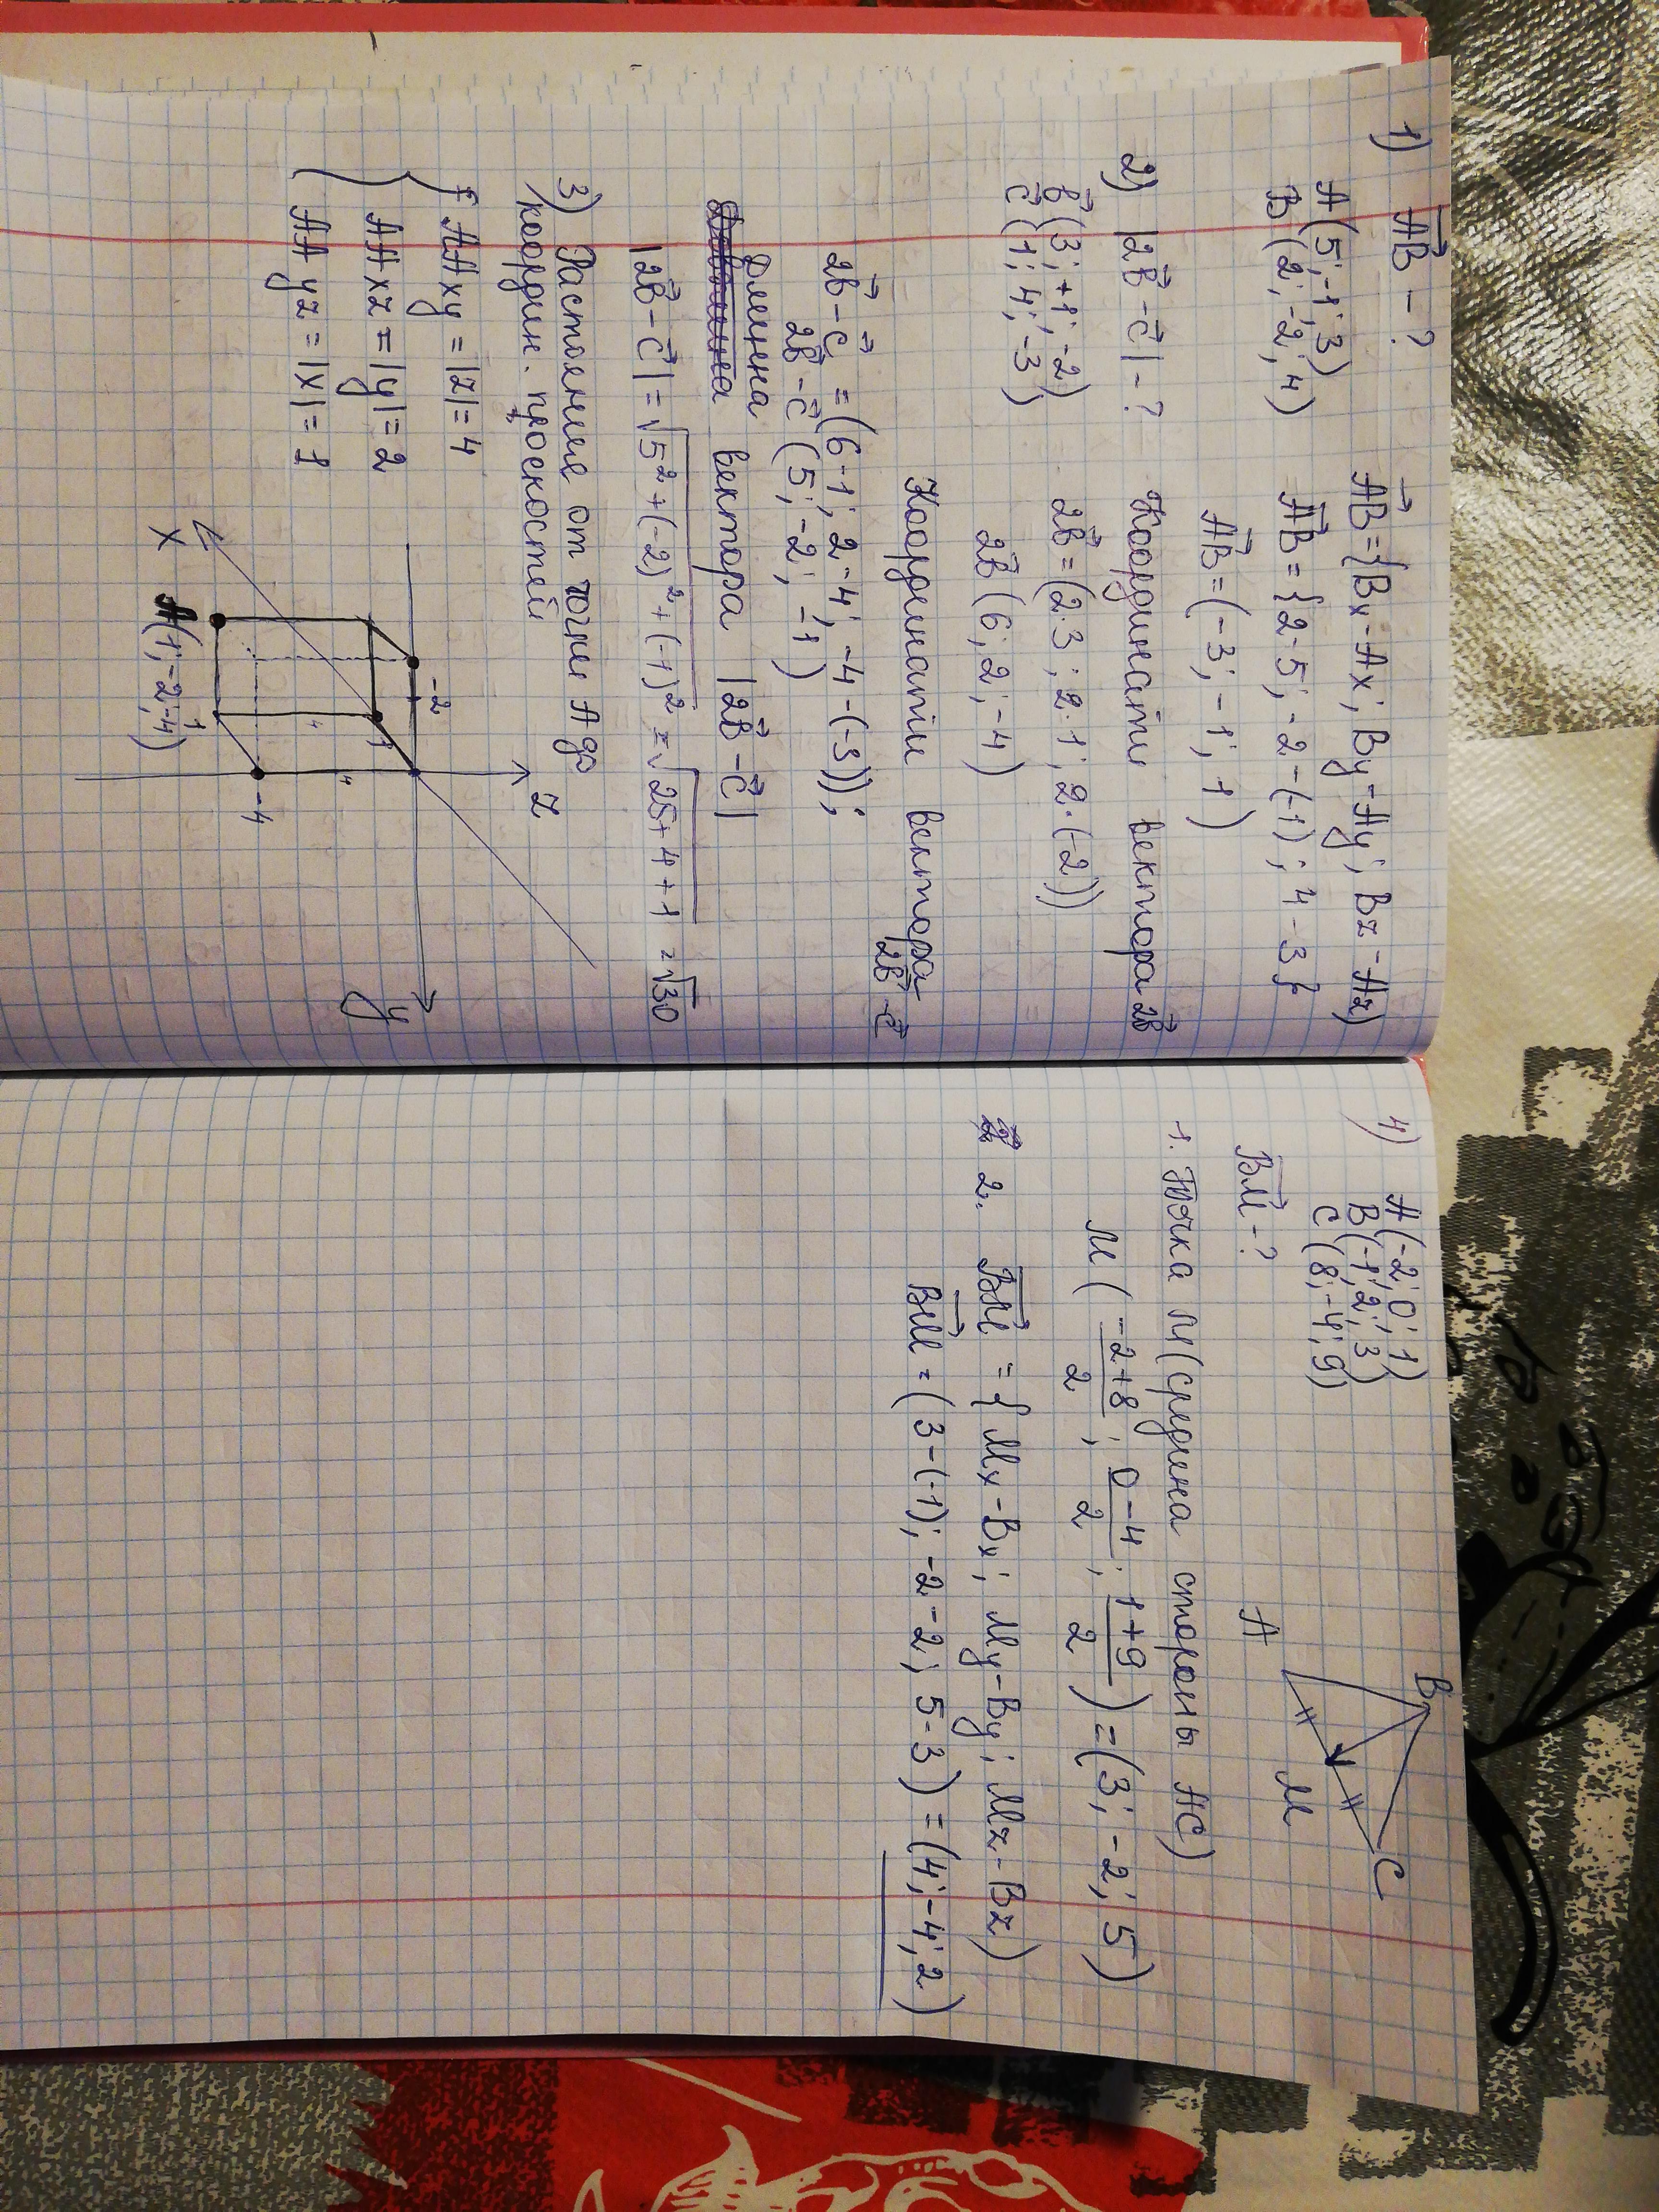 1) AB - ?
A(5;-1;3)
B(2;-2;4)
AB={Bx-Ax; By-Ay; Bz-Az)
AB={2-5; -2-(-1); 4-3}
AB=(-3; -1; 1)
2) |2b-c| - ?
b(3;+1;-2)
c(1;4;-3)
Координати вектора 2b
2b=(2·3; 2·1; 2·(-2))
2b(6; 2; -4)
Координати вектора
2b-c
2b-c=(6-1; 2-4; -4-(-3));
2b-c(5; -2; -1)
Длинна
вектора |2b-c|
|2b-c|=√5²+(-2)²+(-1)²=√25+4+1=√30
3) Растояние от точки А до
координ. проскостей
AAxy=|z|=4
AAxz=|y|=2
AAyz=|x|=1
-2
z
1
4
4
-4
y
x
A(1;-2;-4)
4) A(-2;0;1)
B(-1;2;3)
C(8;-4;9)
BM - ?
B
C
A
M
1. Точка М(средина стороны АС)
M(-2+8/2; 0-4/2; 1+9/2)=(3; -2; 5)
2. BM={Mx-Bx; My-By; Mz-Bz)
BM=(3-(-1); -2-2; 5-3)=(4;-4;2)